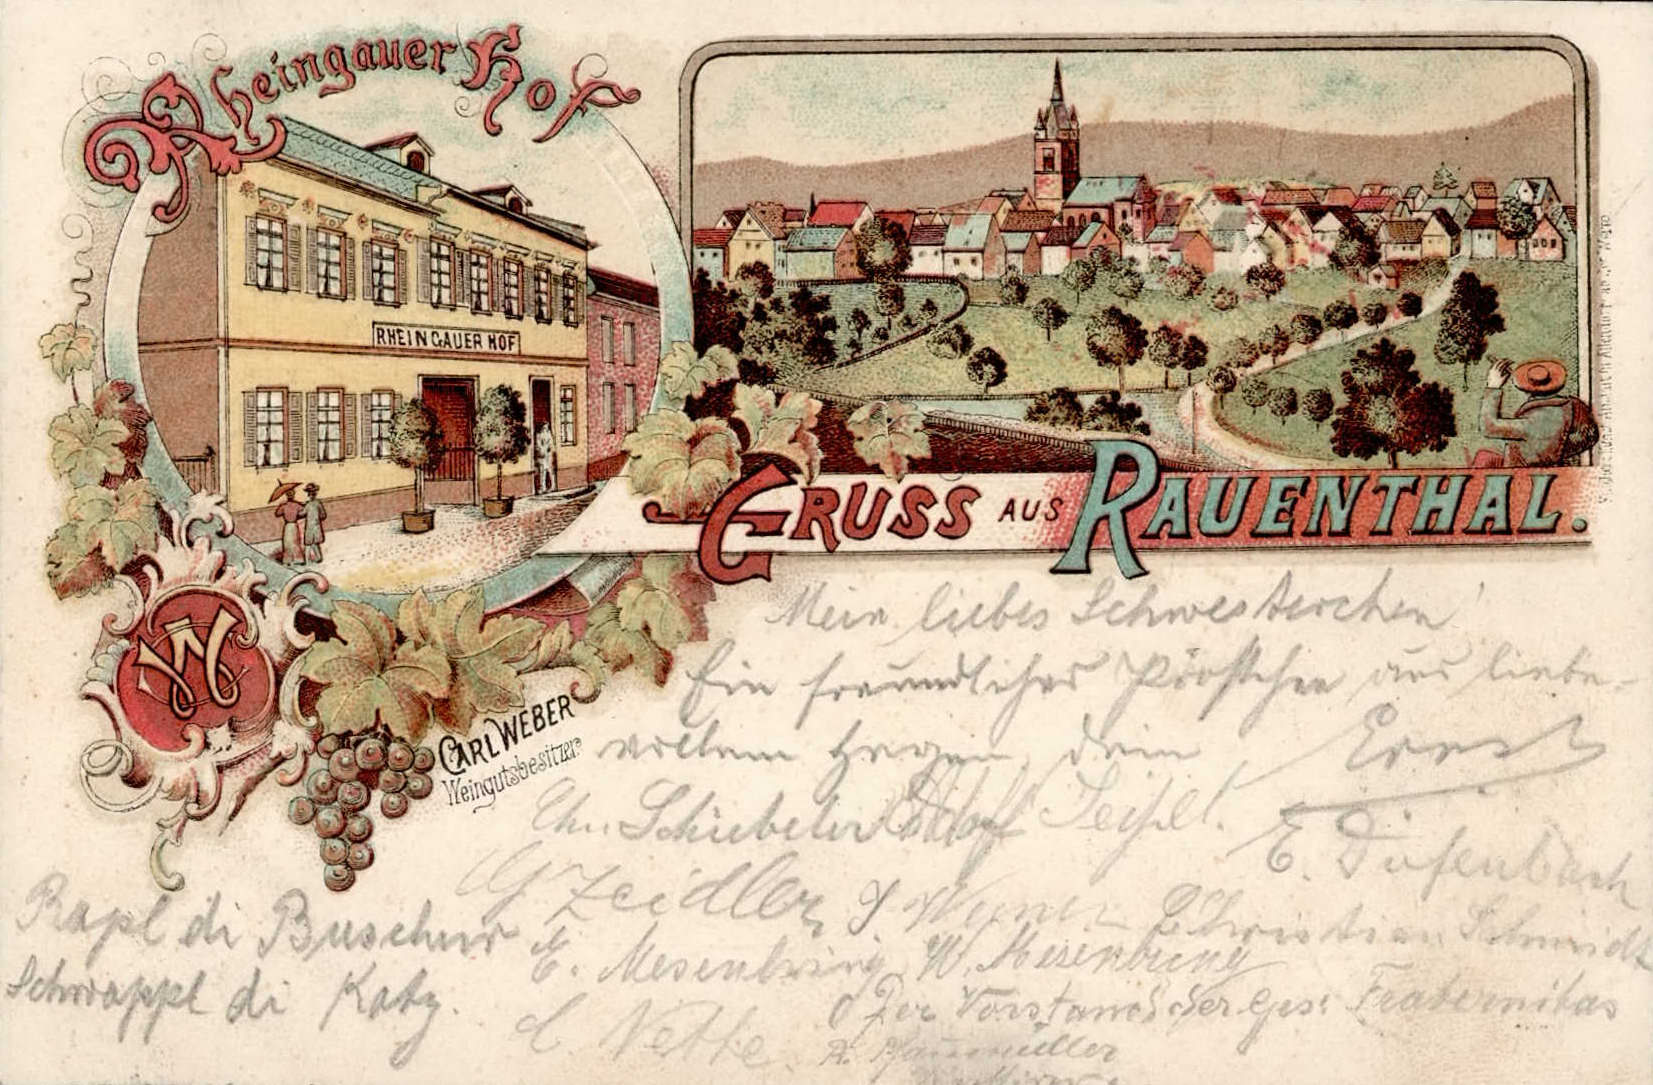 Rheingauer Hof
RHEINGAUER HOF
GRUSS AUS RAUENTHAL.
W
CARL WEBER
Weingutsbesitzer
Mein liebes Schwesterchen!
Ein freundliches Pröstchen aus liebe-
vollem Herzen dein Ernst
Chr. Schiebeler Adolf Seipel.
E. Diefenbach
G Zeidler
Christian Schmidt
Rapl di Buscher
E. Mesenbring W. Mesenbring
Schwappl di Katz.
Der Vorstand der Ges: Fraternitas
C. Nette.